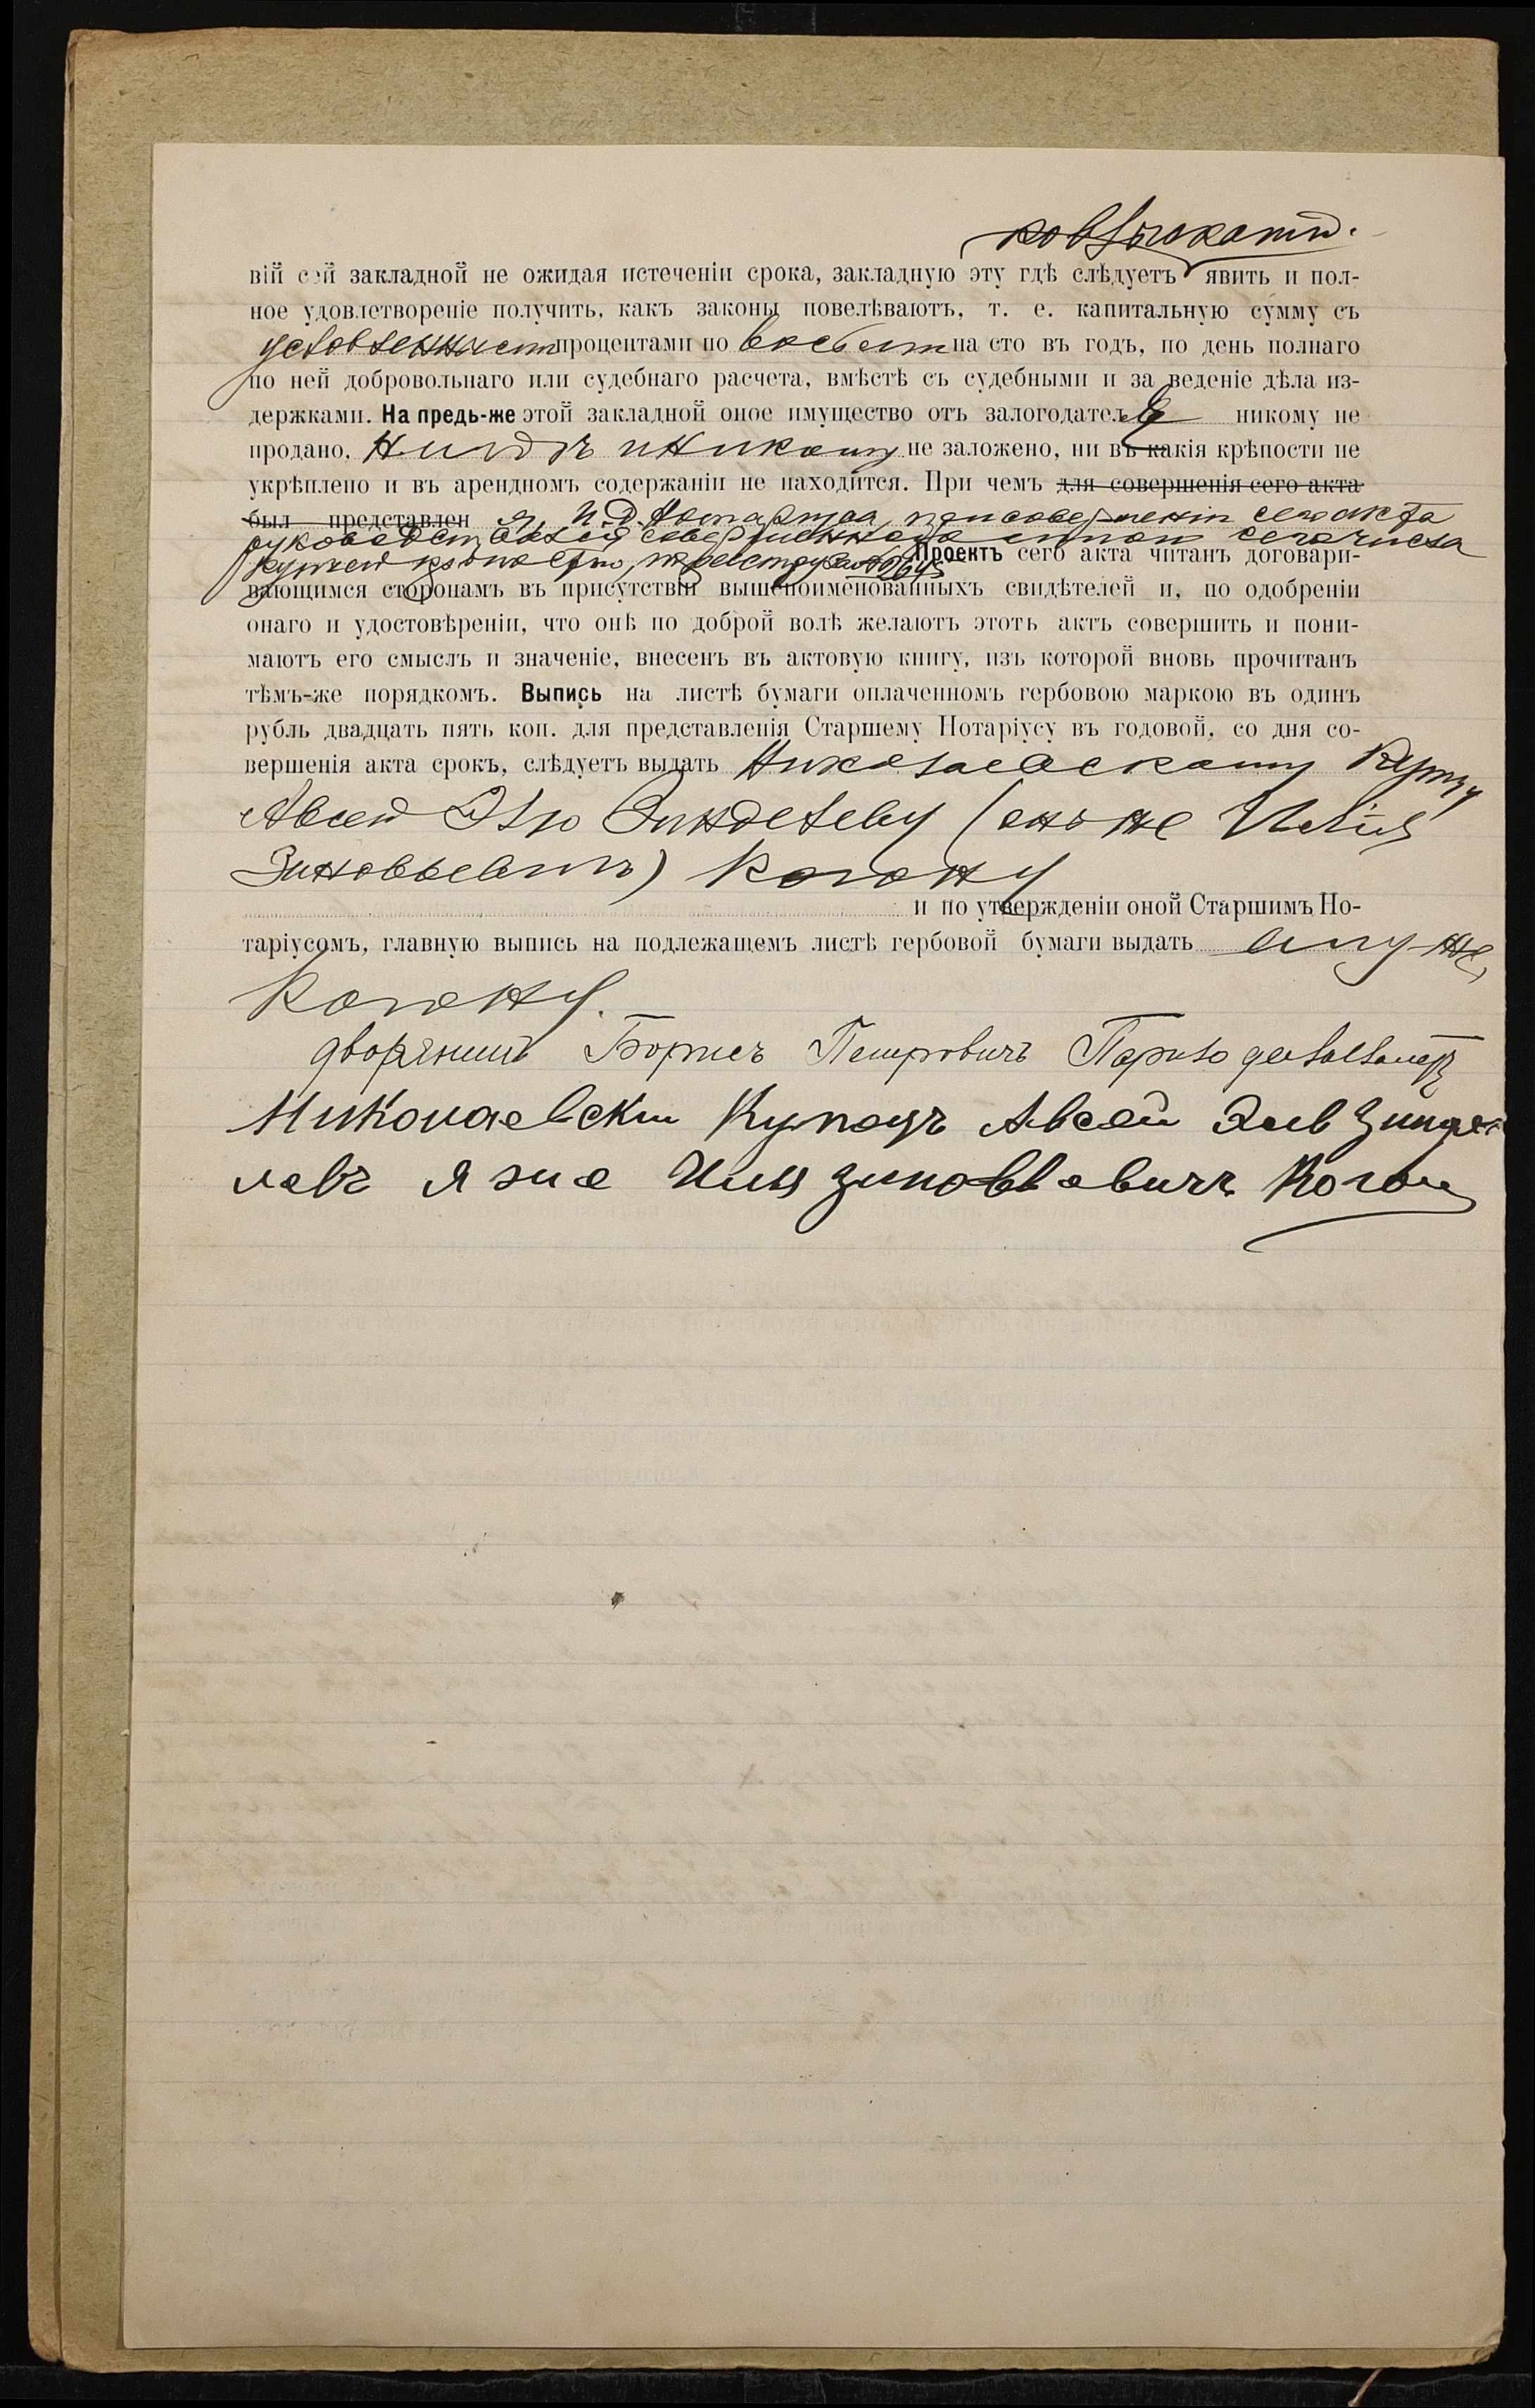 ко взысканію.
вій сей закладной не ожидая истеченія срока, закладную эту гдѣ слѣдуетъ явить и пол-
ное удовлетвореніе получить, какъ законы повелѣваютъ, т. е. капитальную сумму съ
условленными процентами по восьми на сто въ годъ, по день полнаго
по ней добровольнаго или судебнаго расчета, вмѣстѣ съ судебными и за веденіе дѣла из-
держками. На предь-же этой закладной оное имущество отъ залогодателя никому не
продано, нигдѣ и никому не заложено, ни въ какія крѣпости не
укрѣплено и въ арендномъ содержаніи не находится. При чемъ для совершенія сего акта
был представлен я, И. Д. Нотаріуса, при совершеніи сего акта
руководствовался совершенною мною сего числа
купчею крѣпостью, по реестру за №
Проектъ сего акта читанъ договари-
вающимся сторонамъ въ присутствіи вышепоименованныхъ свидѣтелей и, по одобреніи
онаго и удостовѣреніи, что онѣ по доброй волѣ желаютъ этотъ актъ совершить и пони-
маютъ его смыслъ и значеніе, внесенъ въ актовую книгу, изъ которой вновь прочитанъ
тѣмъ-же порядкомъ. Выпись на листѣ бумаги оплаченномъ гербовою маркою въ одинъ
рубль двадцать пять коп. для представленія Старшему Нотаріусу въ годовой, со дня со-
вершенія акта срокъ, слѣдуетъ выдать Николаевскому Купцу
Авсею Элю Зинделеву (онъ же Илія
Зиновьевичъ) Когану
и по утвержденіи оной Старшимъ Но-
таріусомъ, главную выпись на подлежащемъ листѣ гербовой бумаги выдать ему-же,
Когану.
дворянинъ Борисъ Петровичъ
Николаевски Купецъ Авсей Элев Зинде
левъ я же Илія Зиновьевичъ Коган